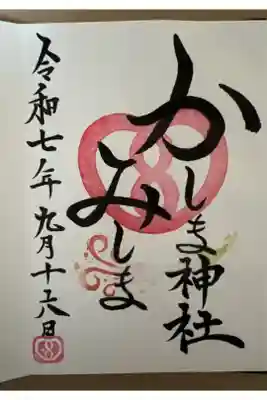 かしま神社
みしま
令和七年九月十六日